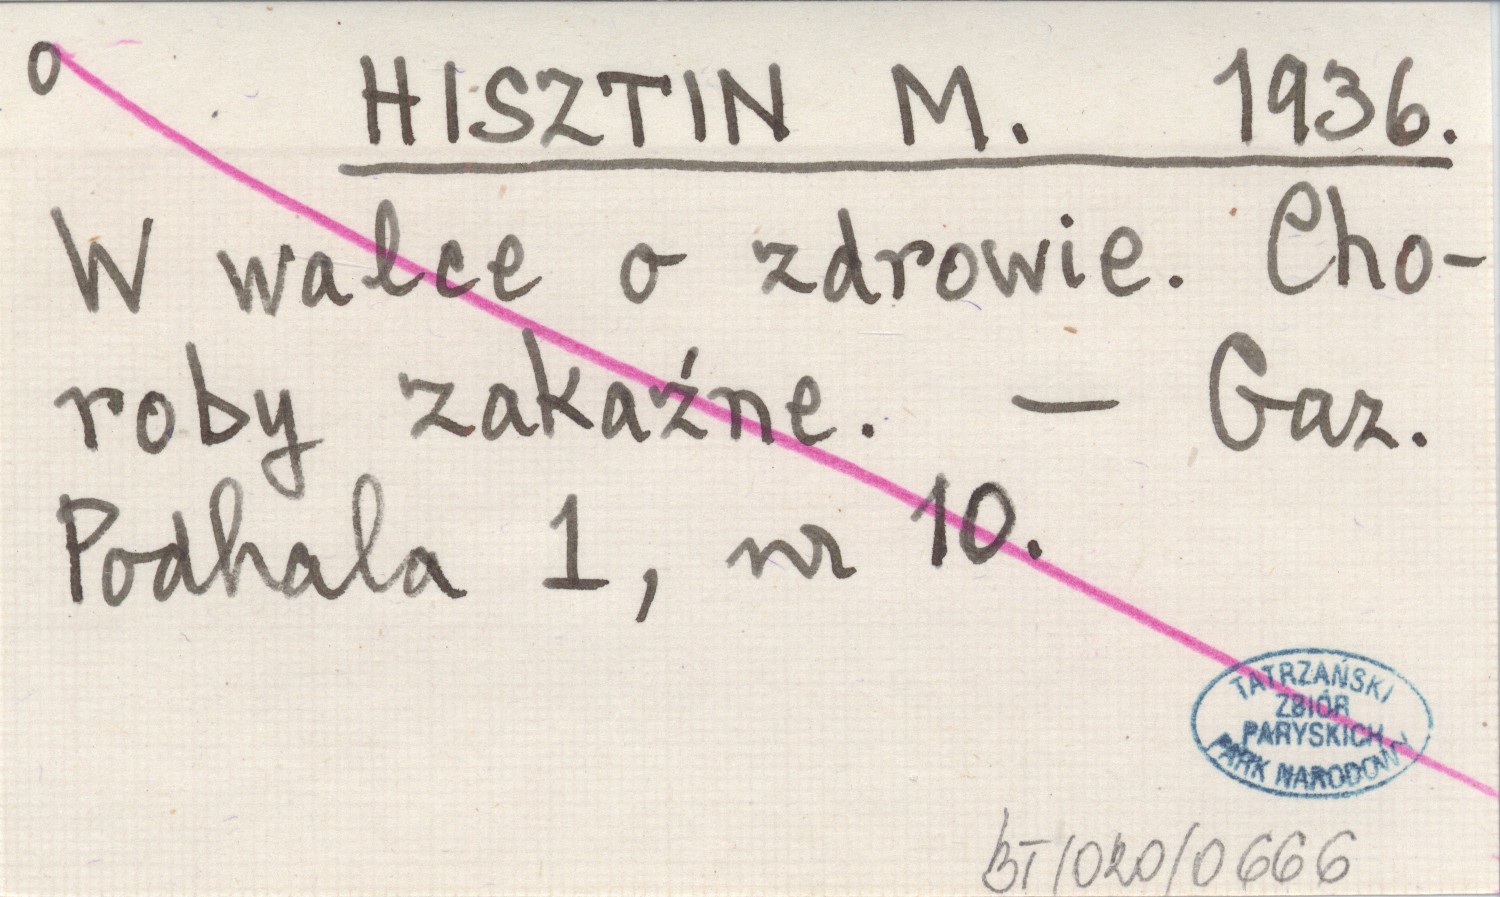 o HISZTIN M. 1936.
W walce o zdrowie. Cho-
roby zakaźne. — Gaz.
Podhala 1, nr 10.
TATRZAŃSKI
ZBIÓR
PARYSKICH
PARK NARODOWY
BT/020/0666